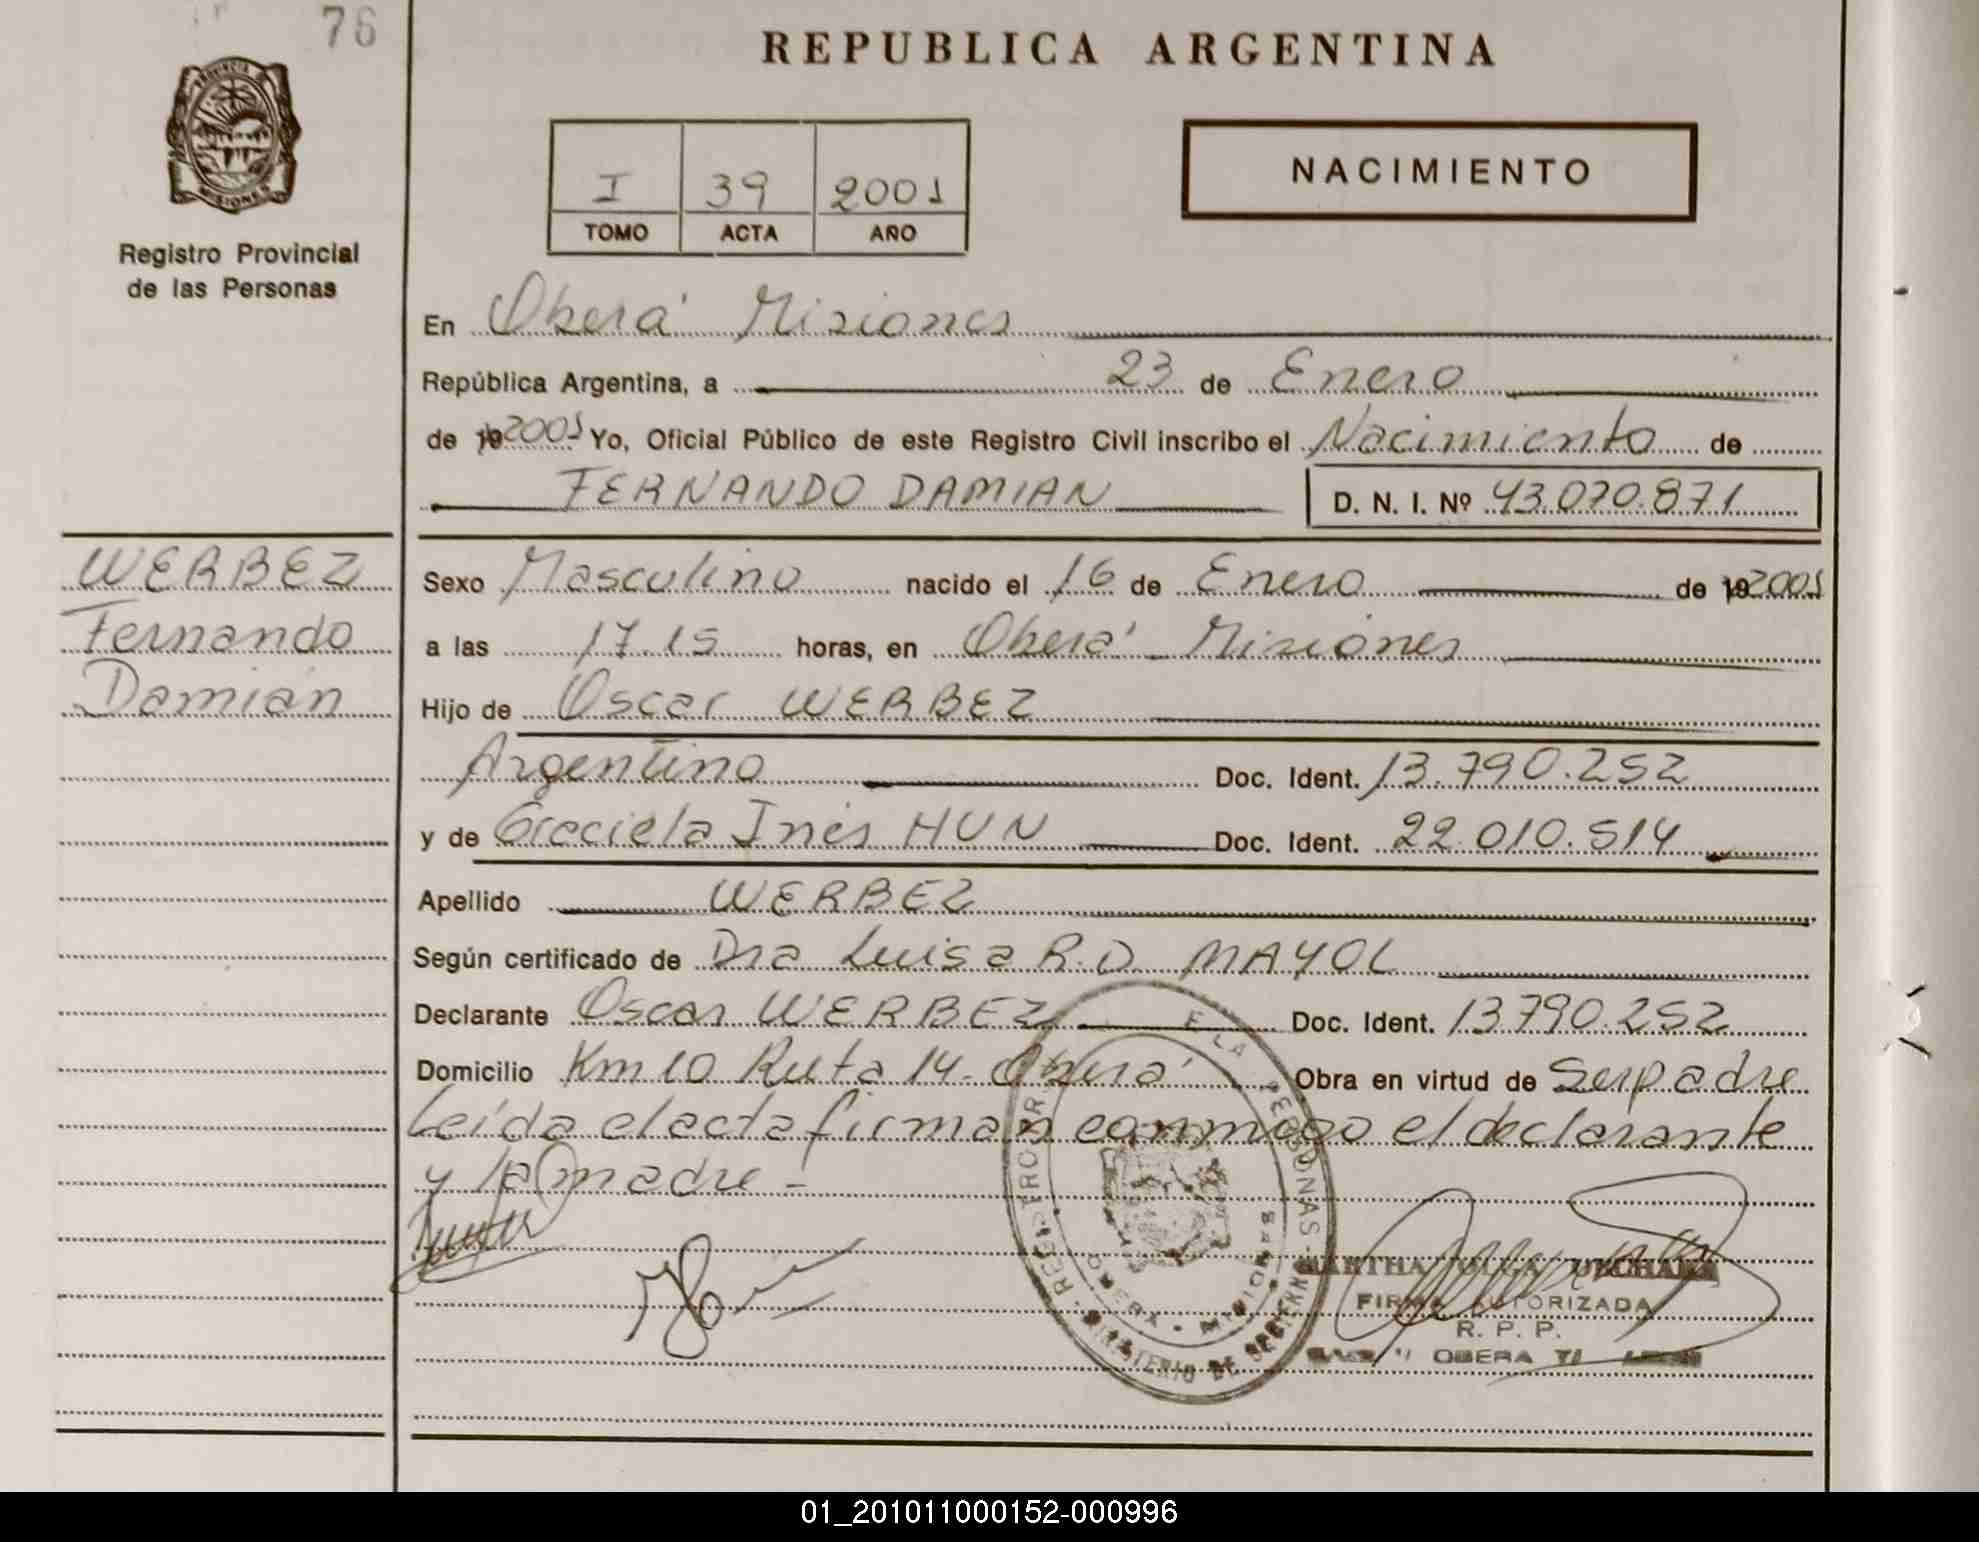 76
REPUBLICA ARGENTINA
PROVINCIA
MISIONES
Registro Provincial
de las Personas
I 39 2001
TOMO ACTA AÑO
NACIMIENTO
En Oberá Misiones
República Argentina, a 23 de Enero
de 19 2001 Yo, Oficial Público de este Registro Civil inscribo el Nacimiento de
FERNANDO DAMIAN D. N. I. Nº 43.070.871
WERBEZ
Fernando
Damián
Sexo Masculino nacido el 16 de Enero de 19 2001
a las 17.15 horas, en Oberá Misiones
Hijo de Oscar WERBEZ
Argentino Doc. Ident. 13.790.252
y de Graciela Inés HUN Doc. Ident. 22.010.514
Apellido WERBEZ
Según certificado de Dra Luisa R.D. MAYOL
Declarante Oscar WERBEZ Doc. Ident. 13790.252
Domicilio Km 10 Ruta 14 - Oberá Obra en virtud de Ser padre
Leída el acta firman conmigo el declarante
y la madre -
E LA PERSONAS
MARTHA
FIRMA AUTORIZADA
R. P. P.
OBERA
01_201011000152-000996